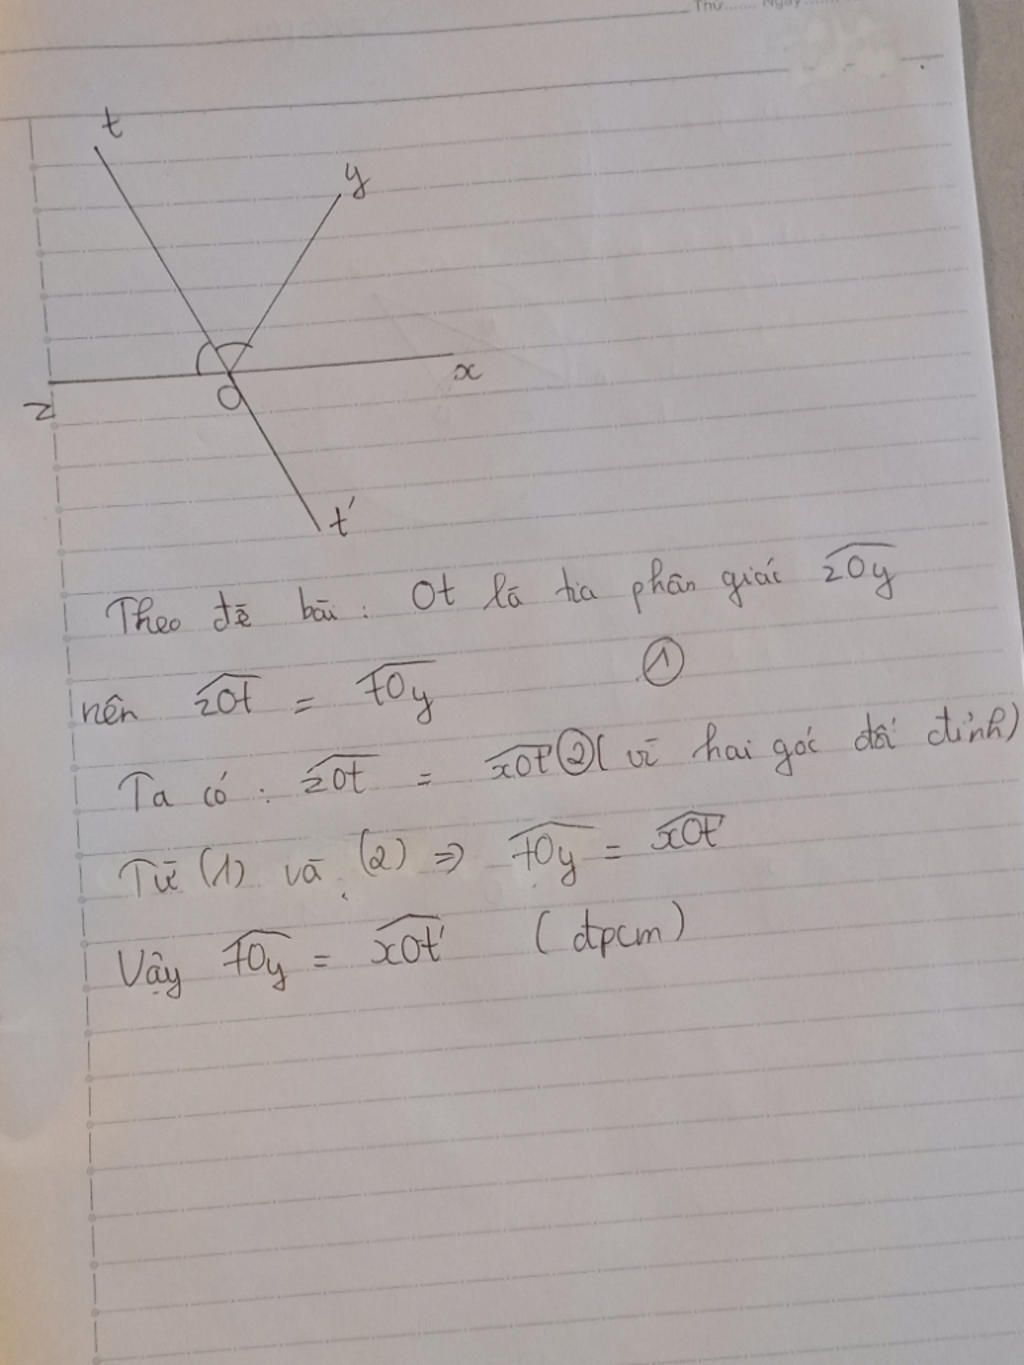 Thứ....... Ngày.......
t
y
x
z
O
t'
Theo đề bài : Ot là tia phân giác zOy
nên zOt = tOy ①
Ta có : zOt = xOt' ② ( vì hai góc đối đỉnh)
Từ (1) và (2) => tOy = xOt'
Vậy tOy = xOt' ( đpcm)